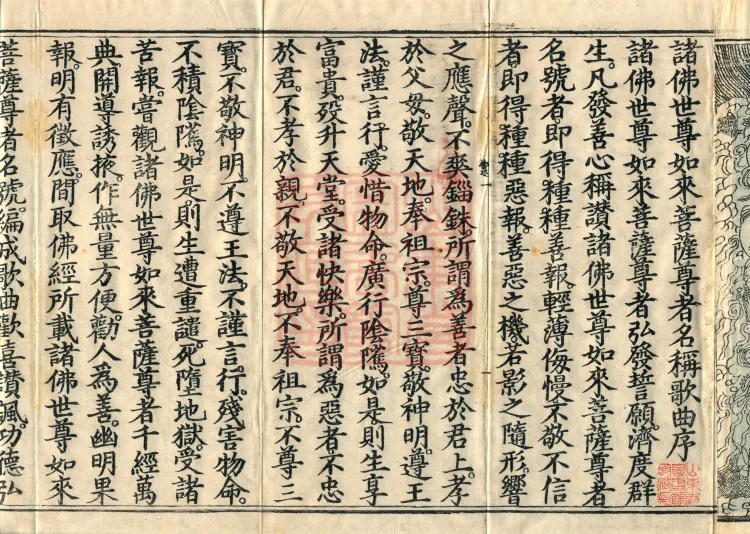 諸佛世尊如來菩薩尊者名稱歌曲序
諸佛世尊如來菩薩尊者弘發誓願濟度群
生。凡發善心稱讚諸佛世尊如來菩薩尊者
名號者即得種種善報。輕薄侮慢不敬不信
者即得種種惡報。善惡之機。若影之隨形。響
之應聲。不爽錙銖。所謂為善者忠於君上。孝
於父母。敬天地。奉祖宗。尊三寶。敬神明。遵王
法。謹言行。愛惜物命。廣行陰隲。如是。則生享
富貴。歿升天堂。受諸快樂。所謂為惡者。不忠
於君。不孝於親。不敬天地。不奉祖宗。不尊三
寶。不敬神明。不遵王法。不謹言行。殘害物命。
不積陰隲。如是。則生遭重譴。死墮地獄。受諸
苦報。嘗觀諸佛世尊如來菩薩尊者千經萬
典。開導誘掖。作無量方便。勸人為善。幽明果
報。明有徵應。間取佛經所載諸佛世尊如來
菩薩尊者名號。編成歌曲。歡喜讚諷。功德弘